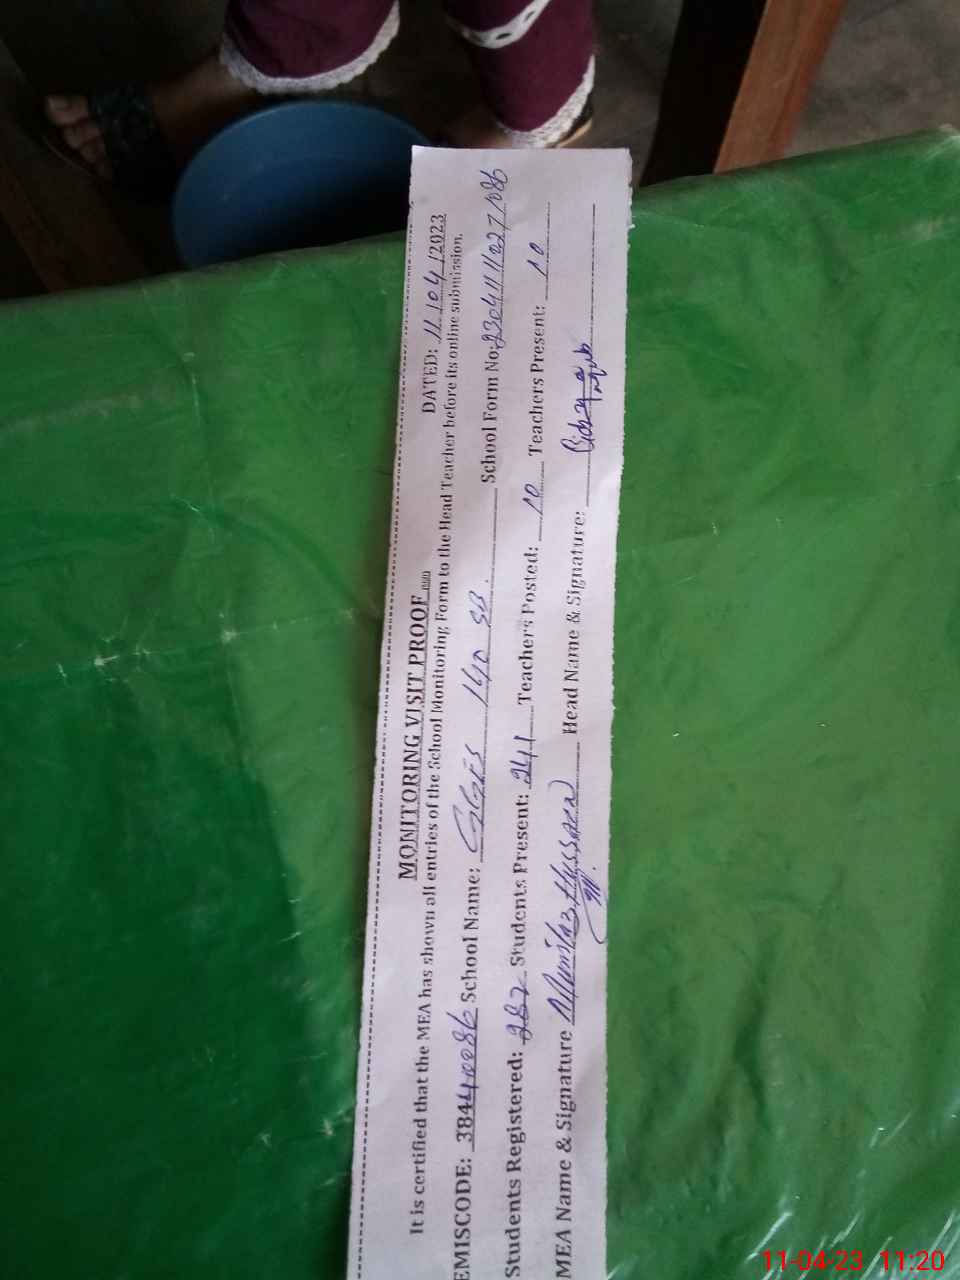 MONITORING VISIT PROOF
DATED: 11/04/2023
It is certified that the MEA has shown all entries of the School Monitoring Form to the Head Teacher before its online submission.
EMISCODE: 38440086 School Name: GGES 140 SB. School Form No: 230411111027/086
Students Registered: 287 Students Present: 241 Teachers Posted: 10 Teachers Present: 10
MEA Name & Signature Mumtaz Hussain Head Name & Signature:
11-04-23 11:20